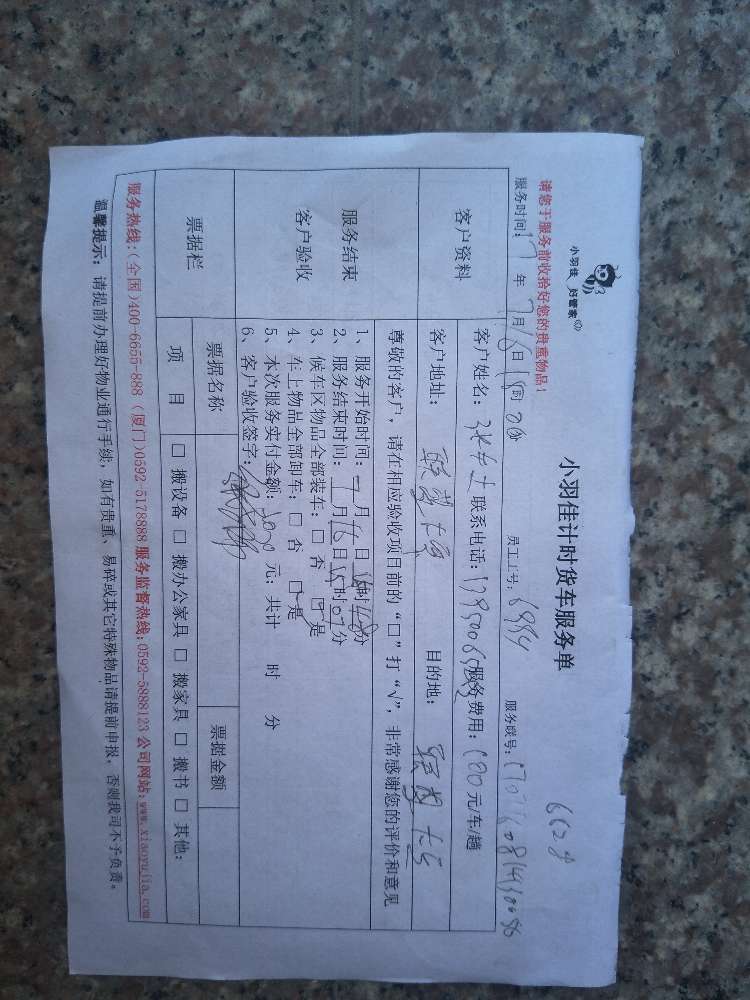 小羽佳 好管家
小羽佳计时货车服务单
6628
请您于服务前收拾好您的贵重物品！
服务时间：17年7月16日 时 分 员工工号：6994 服务联号：
客户资料
客户姓名：张女士 联系电话： 服务费用：180元/车/趟
客户地址： 大厦 目的地： 大厦
尊敬的客户，请在相应验收项目前的“□”打“√”，非常感谢您的评价和意见
服务结束
客户验收
1、服务开始时间：7月 日 时 分
2、服务结束时间：7月16日15时07分
3、候车区物品全部装车：□ 否 □ 是
4、车上物品全部卸车：□ 否 □ 是
5、本次服务实付金额： 元；共计 时 分
6、客户验收签字：
票据栏
票据名称 票据金额
项 目 □ 搬设备 □ 搬办公家具 □ 搬家具 □ 搬书 □ 其他：
服务热线：(全国)400-6655-888 (厦门)0592-5178888 服务监督热线：0592-5888123 公司网站：www.xiaoyujia.com
温馨提示：请提前办理好物业通行手续，如有贵重、易碎或其它特殊物品请提前申报，否则我司不予负责。